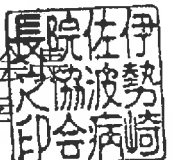 伊勢崎
佐波病
院協会
長之印